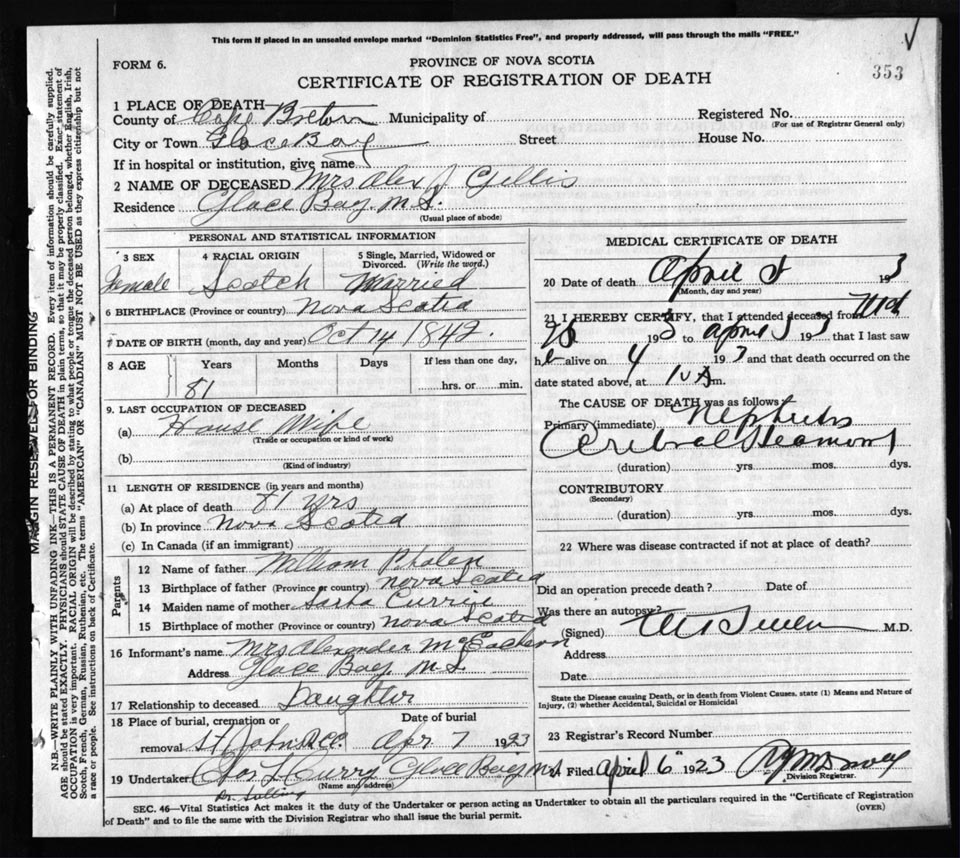 This form if placed in an unsealed envelope marked "Dominion Statistics Free", and properly addressed, will pass through the mails "FREE."
FORM 6.
PROVINCE OF NOVA SCOTIA
CERTIFICATE OF REGISTRATION OF DEATH
353
1 PLACE OF DEATH
County of Cape Breton Municipality of Registered No.
(For use of Registrar General only)
City or Town Glace Bay Street House No.
If in hospital or institution, give name
2 NAME OF DECEASED Mrs Alex J Gillis
Residence Glace Bay N.S.
(Usual place of abode)
PERSONAL AND STATISTICAL INFORMATION
3 SEX 4 RACIAL ORIGIN 5 Single, Married, Widowed or Divorced. (Write the word.)
Female Scotch Married
6 BIRTHPLACE (Province or country) Nova Scotia
7 DATE OF BIRTH (month, day and year) Oct 14 1842.
8 AGE Years Months Days If less than one day,
81 hrs. or min.
9. LAST OCCUPATION OF DECEASED
(a) House Wife
(Trade or occupation or kind of work)
(b)
(Kind of industry)
11 LENGTH OF RESIDENCE (in years and months)
(a) At place of death 81 yrs
(b) In province Nova Scotia
(c) In Canada (if an immigrant)
Parents
12 Name of father William Phalen
13 Birthplace of father (Province or country) Nova Scotia
14 Maiden name of mother Currie
15 Birthplace of mother (Province or country) Nova Scotia
16 Informant's name Mrs Alexander McEachern
Address Glace Bay, N.S.
17 Relationship to deceased Daughter
18 Place of burial, cremation or removal Date of burial
St John Apr 7 1923
19 Undertaker Curry Glace Bay NS
(Name and address)
MEDICAL CERTIFICATE OF DEATH
20 Date of death April 193
(Month, day and year)
21 I HEREBY CERTIFY, that I attended deceased from Mch
193 to april 5 193 that I last saw
h alive on 4 193 and that death occurred on the
date stated above, at 10 A m.
The CAUSE OF DEATH was as follows
Primary (immediate) Nephritis
Cerebral
(duration) yrs. mos. dys.
CONTRIBUTORY
(Secondary)
(duration) yrs. mos. dys.
22 Where was disease contracted if not at place of death?
Did an operation precede death? Date of
Was there an autopsy?
(Signed) M.D.
Address
Date
State the Disease causing Death, or in death from Violent Causes, state (1) Means and Nature of Injury, (2) whether Accidental, Suicidal or Homicidal
23 Registrar's Record Number
Filed April 6 1923
Division Registrar.
SEC. 46—Vital Statistics Act makes it the duty of the Undertaker or person acting as Undertaker to obtain all the particulars required in the "Certificate of Registration
of Death" and to file the same with the Division Registrar who shall issue the burial permit.
(OVER)
MARGIN RESERVED FOR BINDING
N.B.—WRITE PLAINLY WITH UNFADING INK—THIS IS A PERMANENT RECORD. Every item of information should be carefully supplied.
AGE should be stated EXACTLY. PHYSICIANS should STATE CAUSE OF DEATH in plain terms, so that it may be properly classified. Exact statement of
OCCUPATION is very important. RACIAL ORIGIN will be described by stating to what people or tongue the deceased person belonged, whether English, Irish,
Scotch, French, German, Russian, Ruthenian, etc. The terms "AMERICAN" OR "CANADIAN" MUST NOT BE USED as they express citizenship but not
a race or people. See instructions on back of Certificate.